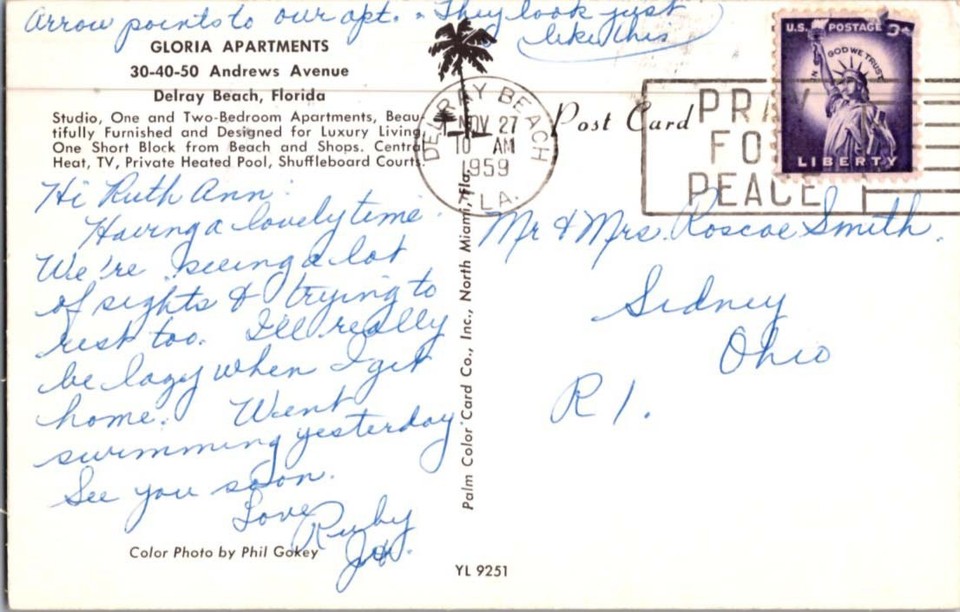 Arrow points to our apt. They look just
like this
GLORIA APARTMENTS
30-40-50 Andrews Avenue
Delray Beach, Florida
Studio, One and Two-Bedroom Apartments, Beau-
tifully Furnished and Designed for Luxury Living
One Short Block from Beach and Shops. Central
Heat, TV, Private Heated Pool, Shuffleboard Courts.
Hi Ruth Ann:
Having a lovely time.
We're seeing a lot
of sights & trying to
rest too. I'll really
be lazy when I get
home. Went
swimming yesterday.
See you soon.
Love
Ruby
Color Photo by Phil Gokey
Palm Color Card Co., Inc., North Miami, Fla.
YL 9251
Post Card
DELRAY BEACH
NOV 27
10 AM
1959
FLA.
PRAY
FOR
PEACE
U.S. POSTAGE 3¢
IN GOD WE TRUST
LIBERTY
Mr & Mrs. Roscoe Smith.
Sidney
Ohio
R 1.